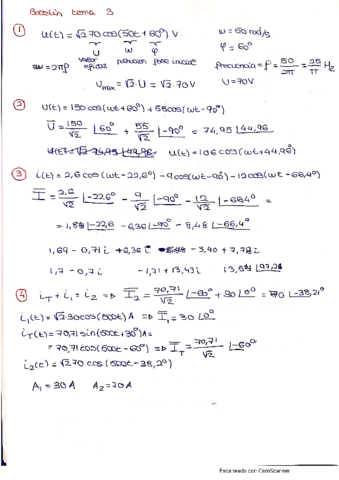 Boletín tema 3
① u(t) = √2 70 cos(50t + 60°) V    w = 50 rad/s
valor eficaz    pulsación    fase inicial    φ = 60°
U    w    φ
w = 2πf    frecuencia = f = 50/2π = 25/π Hz
Umax = √2 · U = √2 · 70V    U = 70V
② U(t) = 150 cos(wt + 60°) + 55 cos(wt - 90°)
U = 150/√2 |60° + 55/√2 |-90° = 74,95 |44,96
U(t) = √2 · 74,95 |44,96    u(t) = 106 cos(wt + 44,98°)
③ i(t) = 2,6 cos(wt - 22,6°) - 9 cos(wt - 90°) - 12 cos(wt - 66,4°)
I = 2,6/√2 |-22,6° - 9/√2 |-90° - 12/√2 |-66,4° =
= 1,84 |-22,6 - 6,36 |-90° - 8,48 |-66,4°
1,69 - 0,71 i + 6,36 i - 3,40 + 7,78 i
1,7 - 0,7 i    -1,71 + 13,43 i    13,54 |97,26
④ iT + i1 = i2 ⇒ I2 = 70,71/√2 |-60° + 30 |0° = 70 |-38,21°
i1(t) = √2 30 cos(500t) A ⇒ I1 = 30 |0°
iT(t) = 70,71 sin(500t + 30°) A =
= 70,71 cos(500t - 60°) ⇒ IT = 70,71/√2 |-60°
i2(t) = √2 70 cos(500t - 38,2°)
A1 = 30 A    A2 = 70 A
Escaneado con CamScanner